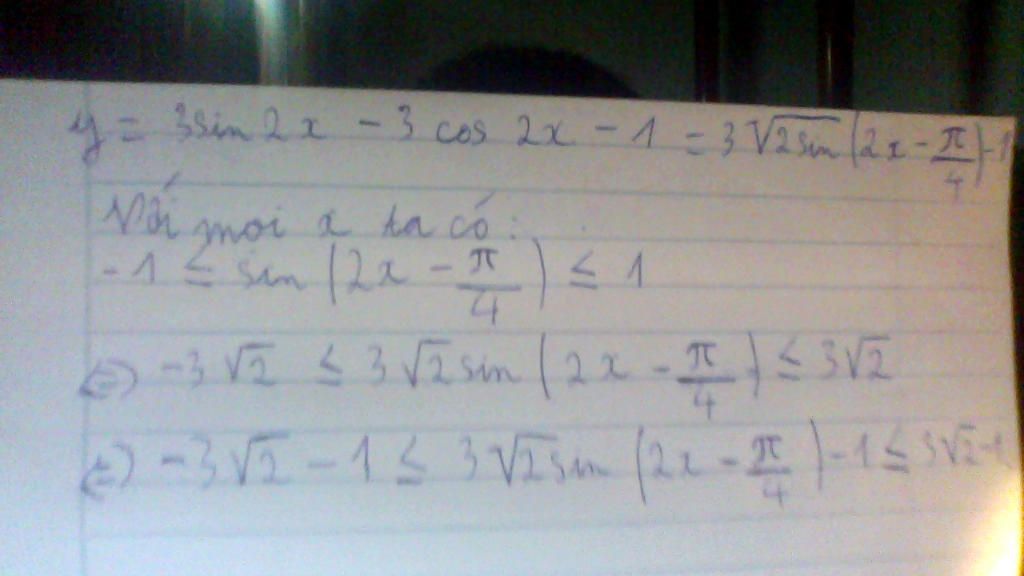 y = 3sin 2x - 3 cos 2x - 1 = 3√(2sin)(2x - π/4) - 1
Với mọi x ta có:
-1 ≤ sin (2x - π/4) ≤ 1
⇔ -3√2 ≤ 3√2 sin (2x - π/4) ≤ 3√2
⇔ -3√2 - 1 ≤ 3√2 sin (2x - π/4) - 1 ≤ 3√2 - 1